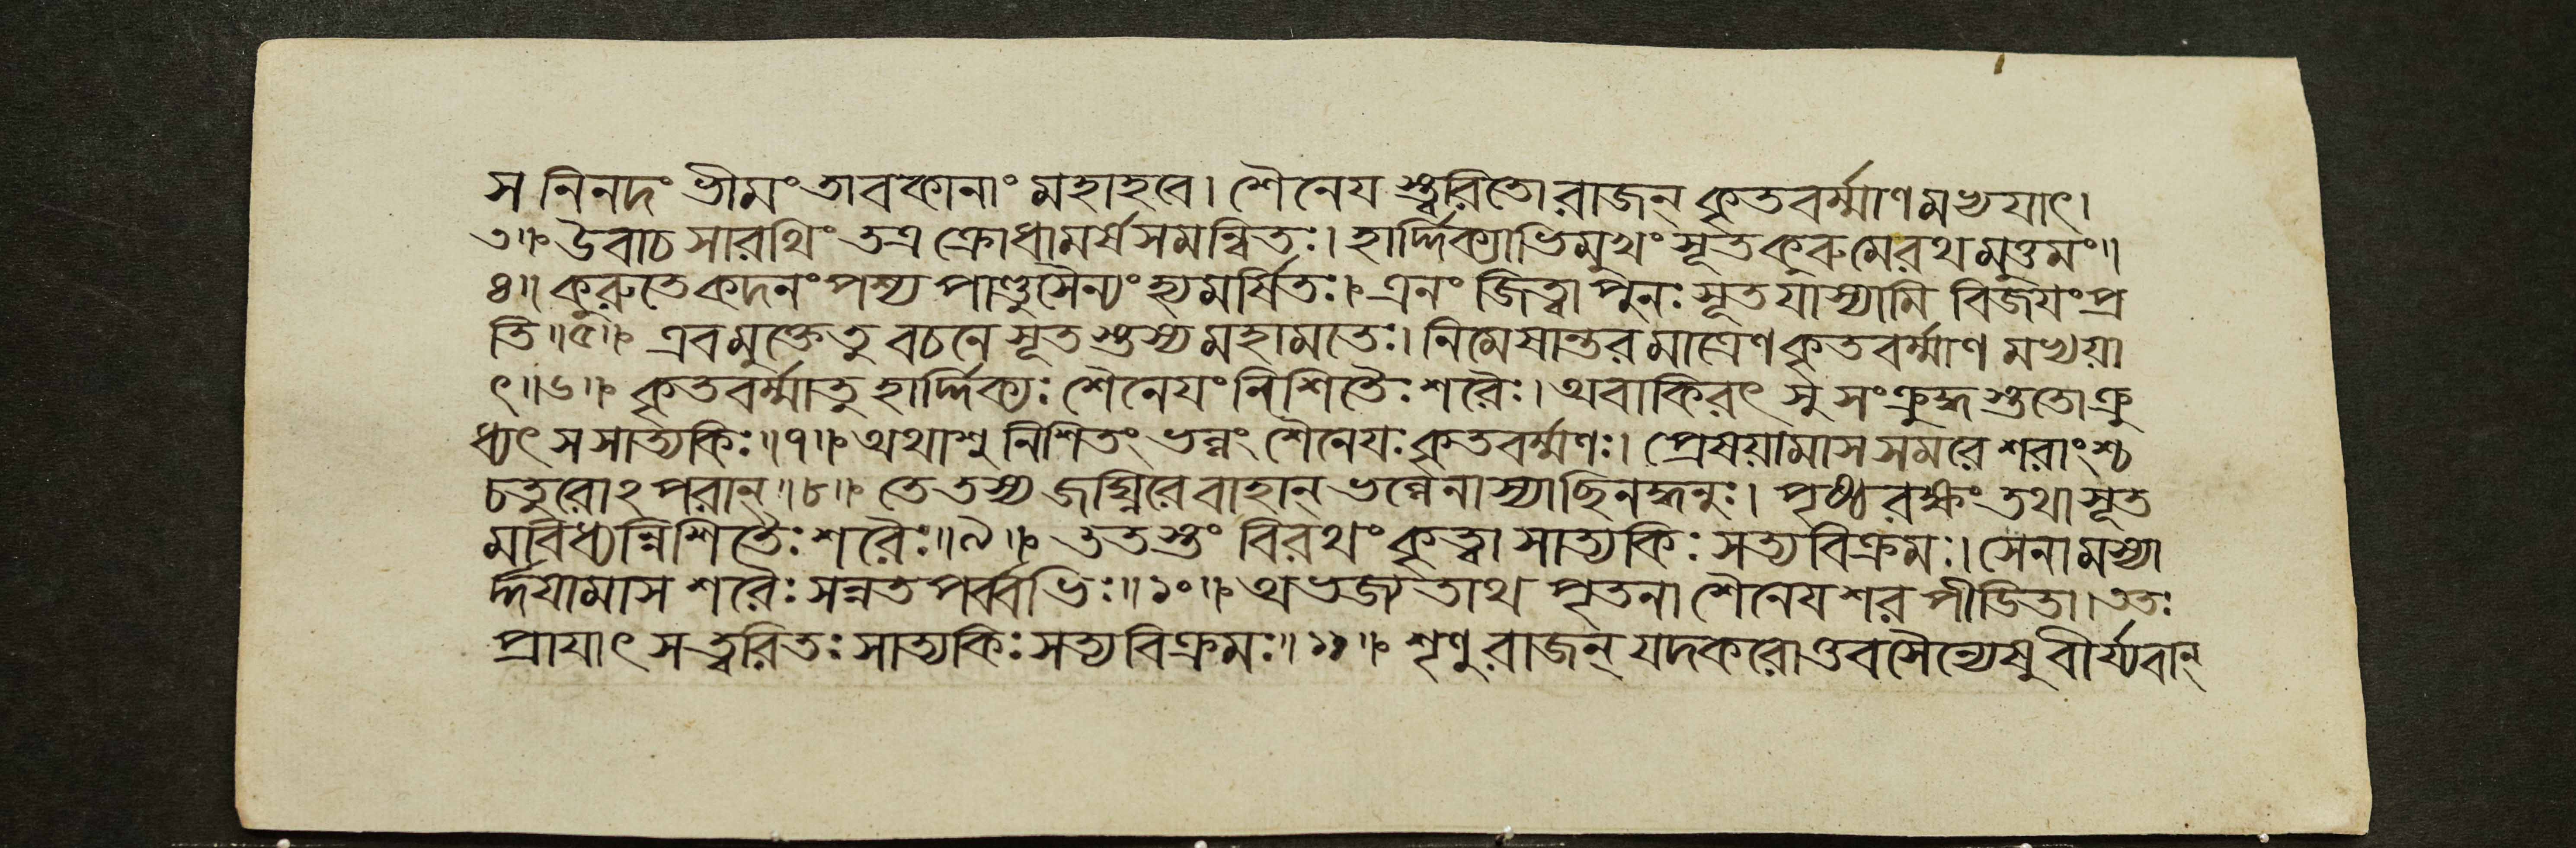 স নিনদং ভীমং তাবকানাং মহাহবে। শৈনেয স্ত্বরিতো রাজন্ কৃতবর্ম্মাণমভ্যযাৎ।
৩॥ উবাচ সারথিং তত্র ক্রোধামর্ষসমন্বিতঃ। হার্দ্দিক্যাভিমুখং সূত কুরু মে রথমুত্তমং॥
৪॥ কুরুতে কদনং পশ্য পাণ্ডুসৈন্যং হ্যমর্ষিতঃ। এনং জিত্বা পুনঃ সূত যাস্যামি বিজযং প্র
তি॥৫॥ এবমুক্তে তু বচনে সূতস্তস্য মহামতেঃ। নিমেষান্তরমাত্রেণ কৃতবর্ম্মাণমভ্যয়া
ৎ॥৬॥ কৃতবর্ম্মা তু হার্দ্দিক্যঃ শৈনেযং নিশিতৈঃ শরৈঃ। অবাকিরৎ সুসংক্রুদ্ধস্ততো ক্রু
ধ্যৎ স সাত্যকিঃ॥৭॥ অথাশু নিশিতং ভল্লং শৈনেযঃ কৃতবর্ম্মণঃ। প্রেষয়ামাস সমরে শরাংশ্চ
চতুরোঽপরান্॥৮॥ তে তস্য জঘ্নিরে বাহান্ ভল্লেনাস্যাছিনদ্ধনুঃ। পৃষ্ঠরক্ষং তথা সূত
মবিধ্যন্নিশিতৈঃ শরৈঃ॥৯॥ ততস্তং বিরথং কৃত্বা সাত্যকিঃ সত্যবিক্রমঃ। সেনামস্যা
র্দ্দযামাস শরৈঃ সন্নতপর্ব্বভিঃ॥১০॥ অভজ্যতাথ পৃতনা শৈনেযশরপীডিতা। ততঃ
প্রাযাৎ স ত্বরিতঃ সাত্যকিঃ সত্যবিক্রমঃ॥১১॥ শৃণু রাজন্ যদকরোত্তব সৈন্যেষু বীর্য্যবান্